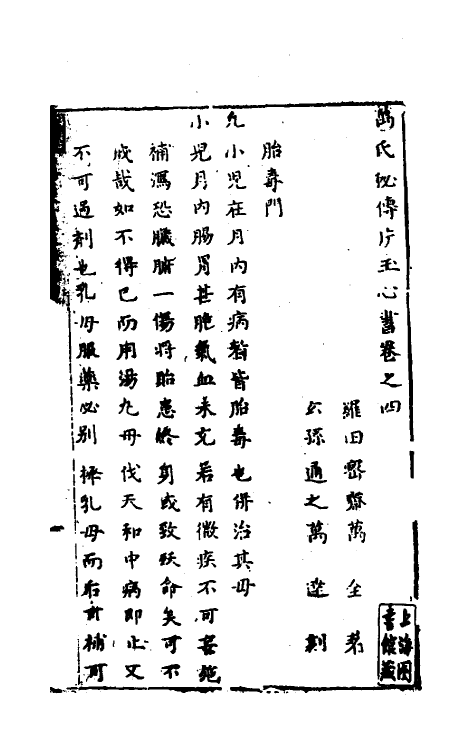 萬氏秘傳片玉心書卷之四
羅田密齋萬 全 著
玄孫通之萬 達 刻
胎毒門
凡小児在月内有病者皆胎毒也併治其母
小児月内腸胃甚脆氣血未充若有微疾不可妄施
補瀉恐臟腑一傷將胎患終身或致殀命矣可不
戒哉如不得已而用湯丸毋伐天和中病即止又
不可過剤也乳母服藥必別擇乳母而后可補可
上海图書館藏